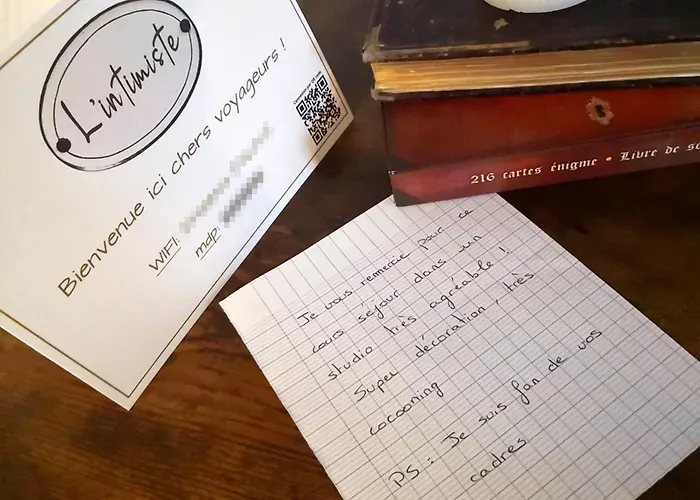 L'intimiste
Bienvenue ici chers voyageurs !
WIFI:
mdp:
216 cartes énigme • Livre de
Je vous remercie pour ce
cours séjour dans un
studio très agréable !
Super décoration, très
cocooning
PS : Je suis fan de vos
cadres